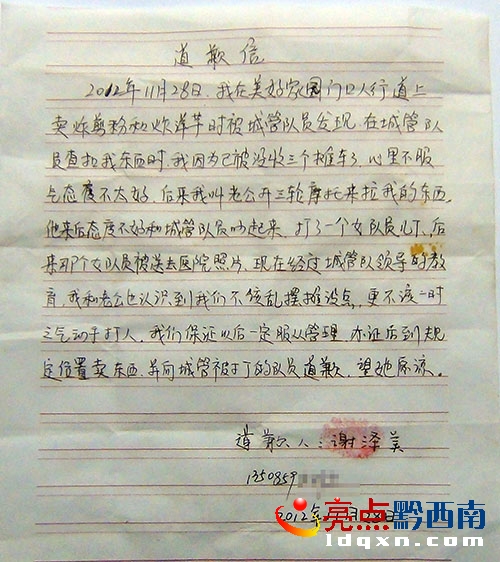 道歉信
2012年11月28日,我在美好家园门口人行道上
卖炸剪粉和炸洋芋时被城管队员发现,在城管队
员查扣我东西时,我因为己被没收三个摊车了,心里不服
气态度不太好,后来我叫老公开三轮摩托来拉我的东西,
他来后态度不好和城管队员吵起来,打了一个女队员几下,后
来那个女队员被送去医院照片,现在经过城管队领导的教
育,我和老公也认识到我们不该乱摆摊设点,更不该一时
之气动手打人,我们保证以后一定服从管理,办证后到规
定位置卖东西,并向城管被打的队员道歉,望她原谅。
道歉人:谢泽美
1350859
2012年11月28日
亮点黔西南
ldqxn.com